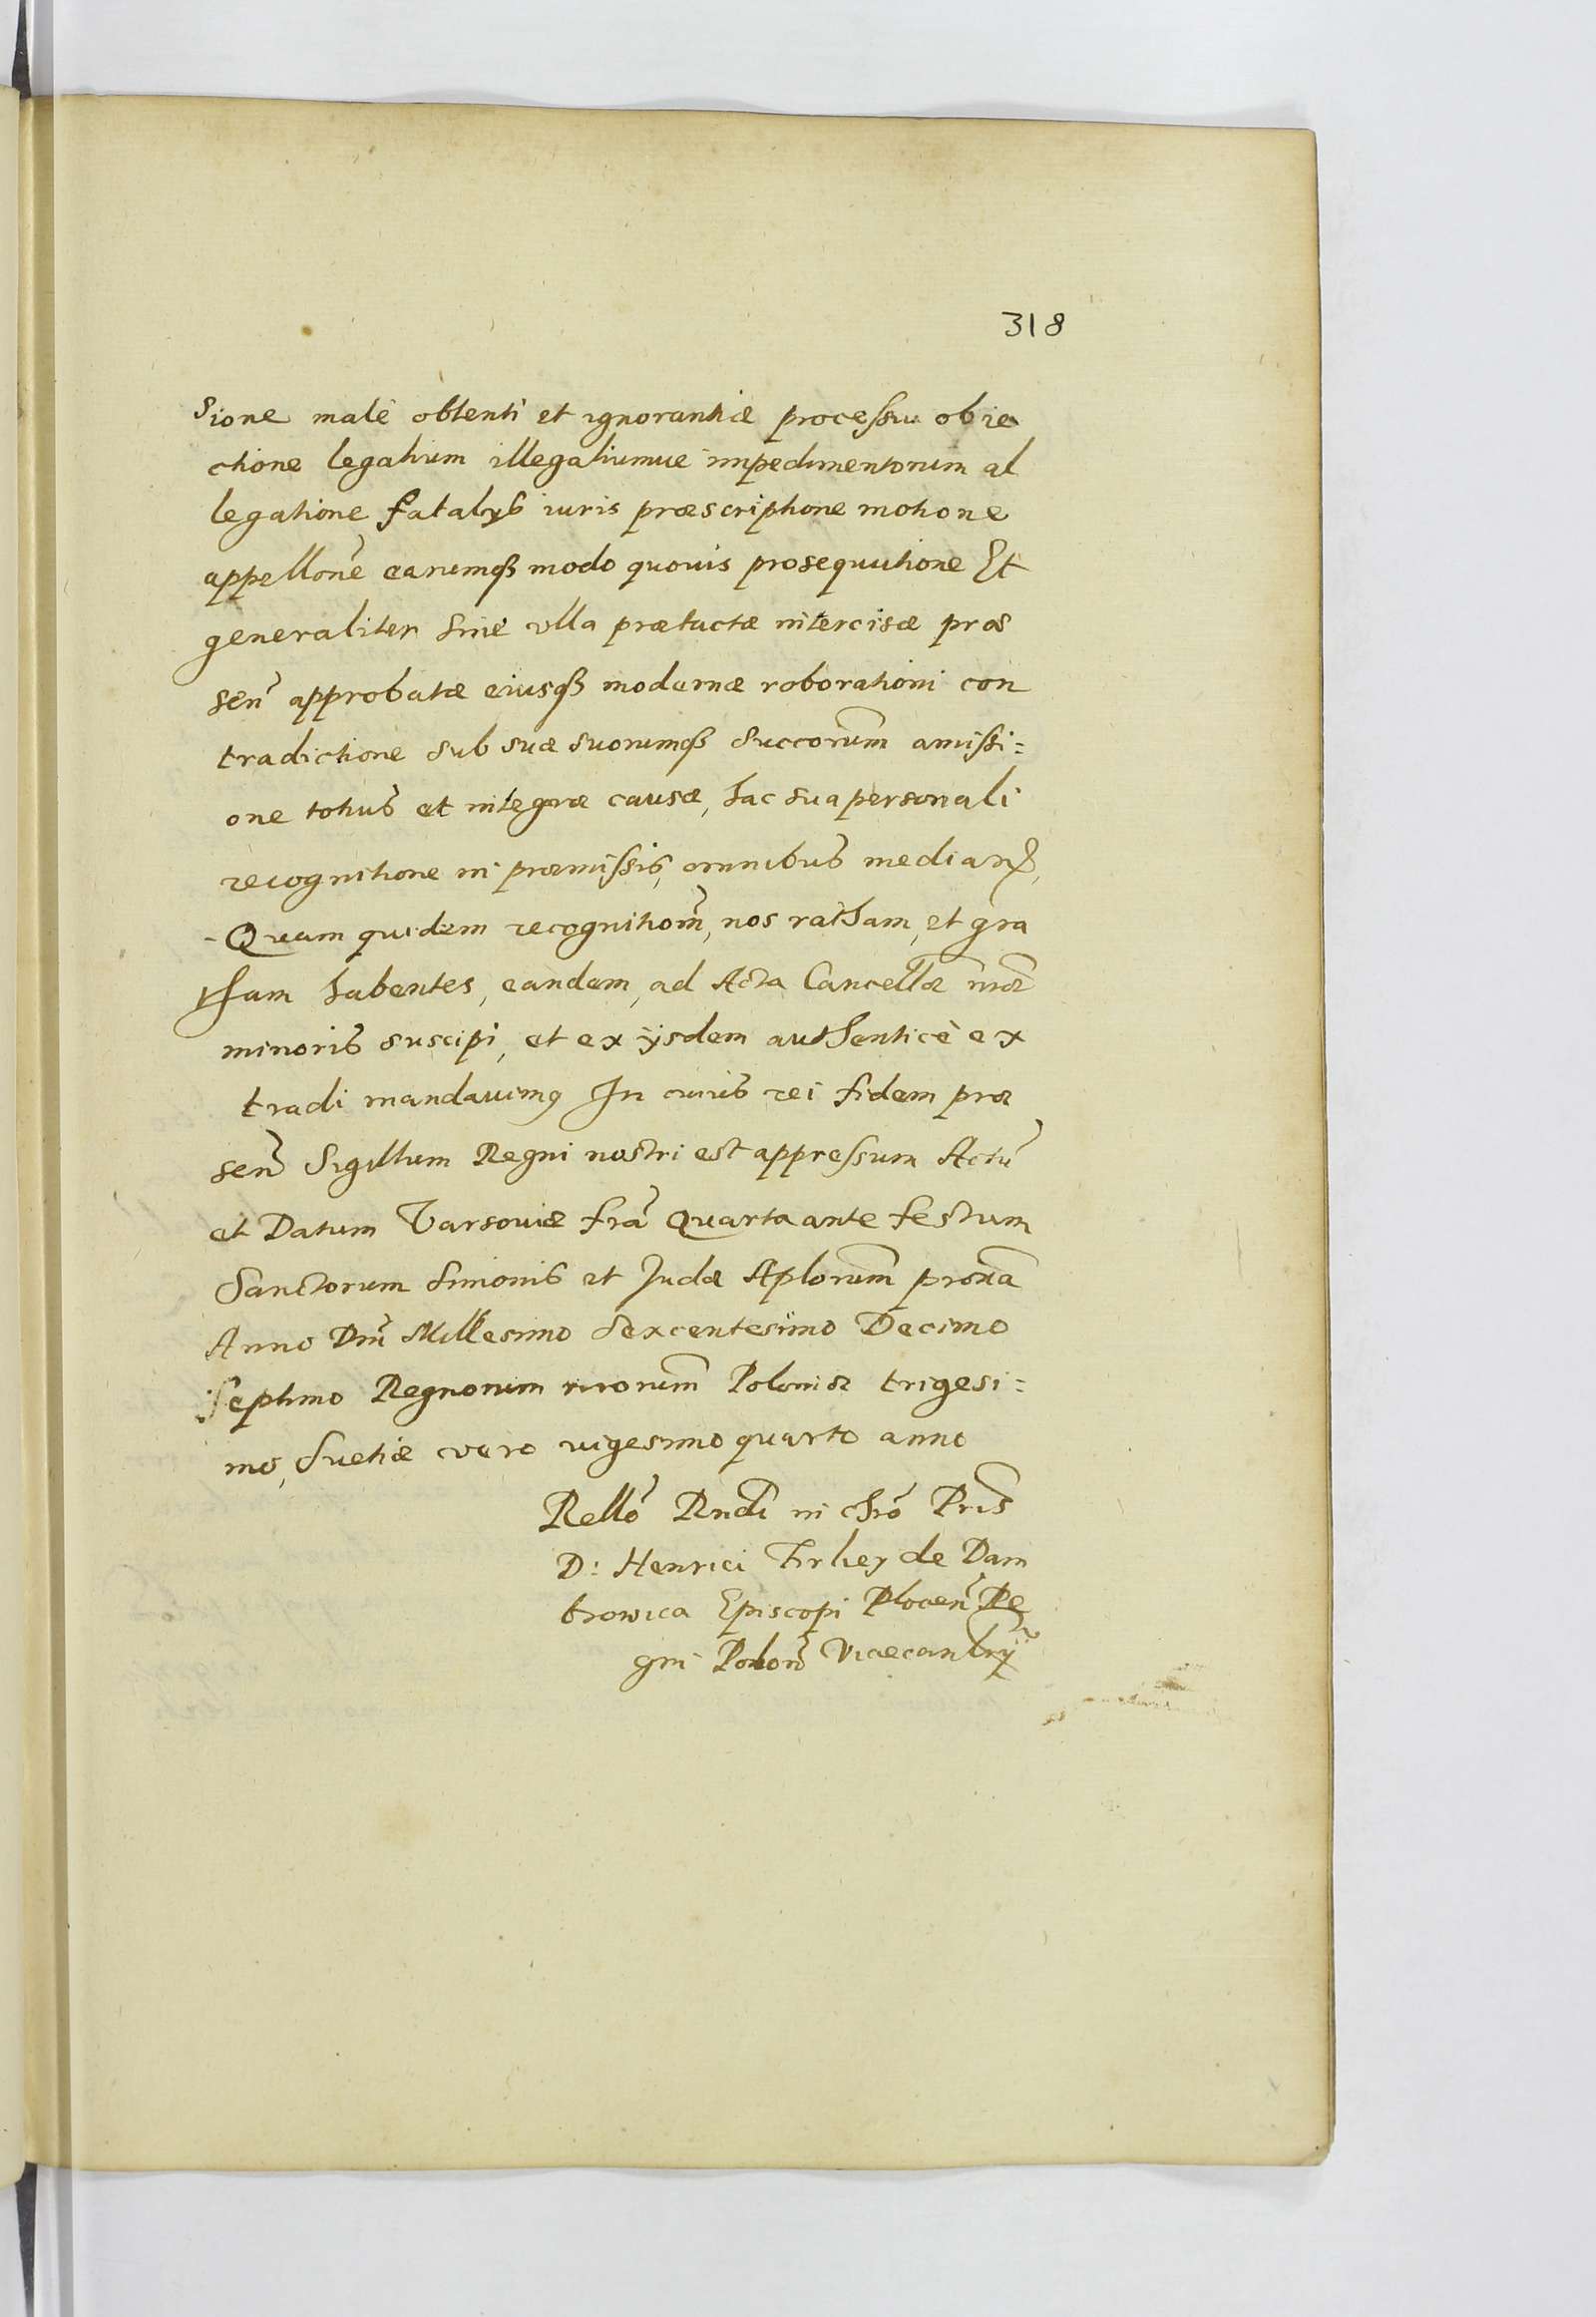 318
sione malè obtenti et ignorantiæ processu obie
ctione legalium illegaliumue impedimentorum al
legatione fatalys iuris præscriptione motione
appellonẽ earumqß modo quouis prosequutione Et
generaliter sine vlla prætactæ intercisæ præ
señ approbatæ eiusqß modernæ roborationi con
tradictione sub suæ suorumqß succorum̃ amissi=
one totius et integræ causæ, hac sua personali
recognitione in præmissis, omnibus median͂,
Quam quidem recognitiom̃, nos ratham, et gra
tham habentes, eandem, ad Acta Cancellæ nræ
minoris suscipi, et ex ijsdem authenticè ex
tradi mandauimꝰ In cuius rei fidem præ
señ Sigillum Regni nostri est appressum Actũ
et Datum Varsouiæ fr̃a Quarta ante festum
Sanctorum Simonis et Judæ Aplorum̃ proxã
Anno Dnĩ Millesimo Sexcentesimo Decimo
septimo Regnorum nrorum̃ Poloniæ trigesi=
mo, Suetiæ vero vigesimo quarto anno
Rellõ Rndĩ in chrõ Pris̃
D: Henrici Firlieÿ de Dam
browica Episcopi Plocen̄ Re
gni Polon̄ Vicecanlrÿ